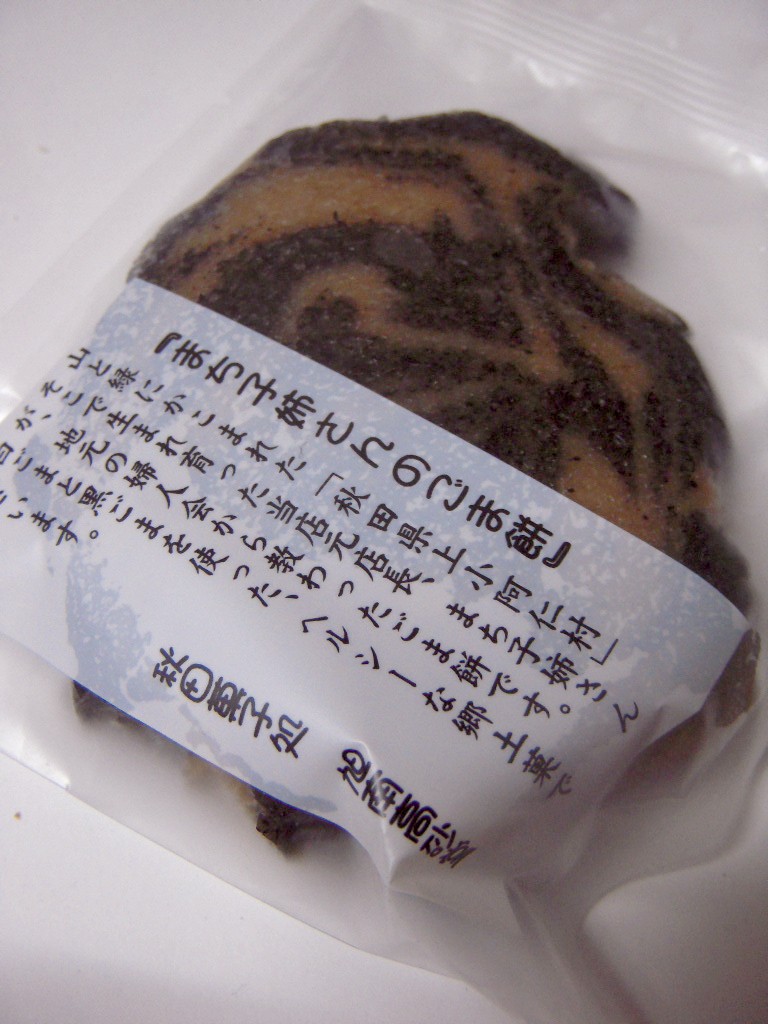 『まち子姉さんのごま餅』
山と緑にかこまれた「秋田県上小阿仁村」
そこで生まれ育った当店元店長、まち子姉さん
が、地元の婦人会から教わったごま餅です。
白ごまと黒ごまを使った、ヘルシーな郷土菓で
います。
秋田菓子処 旭南高砂